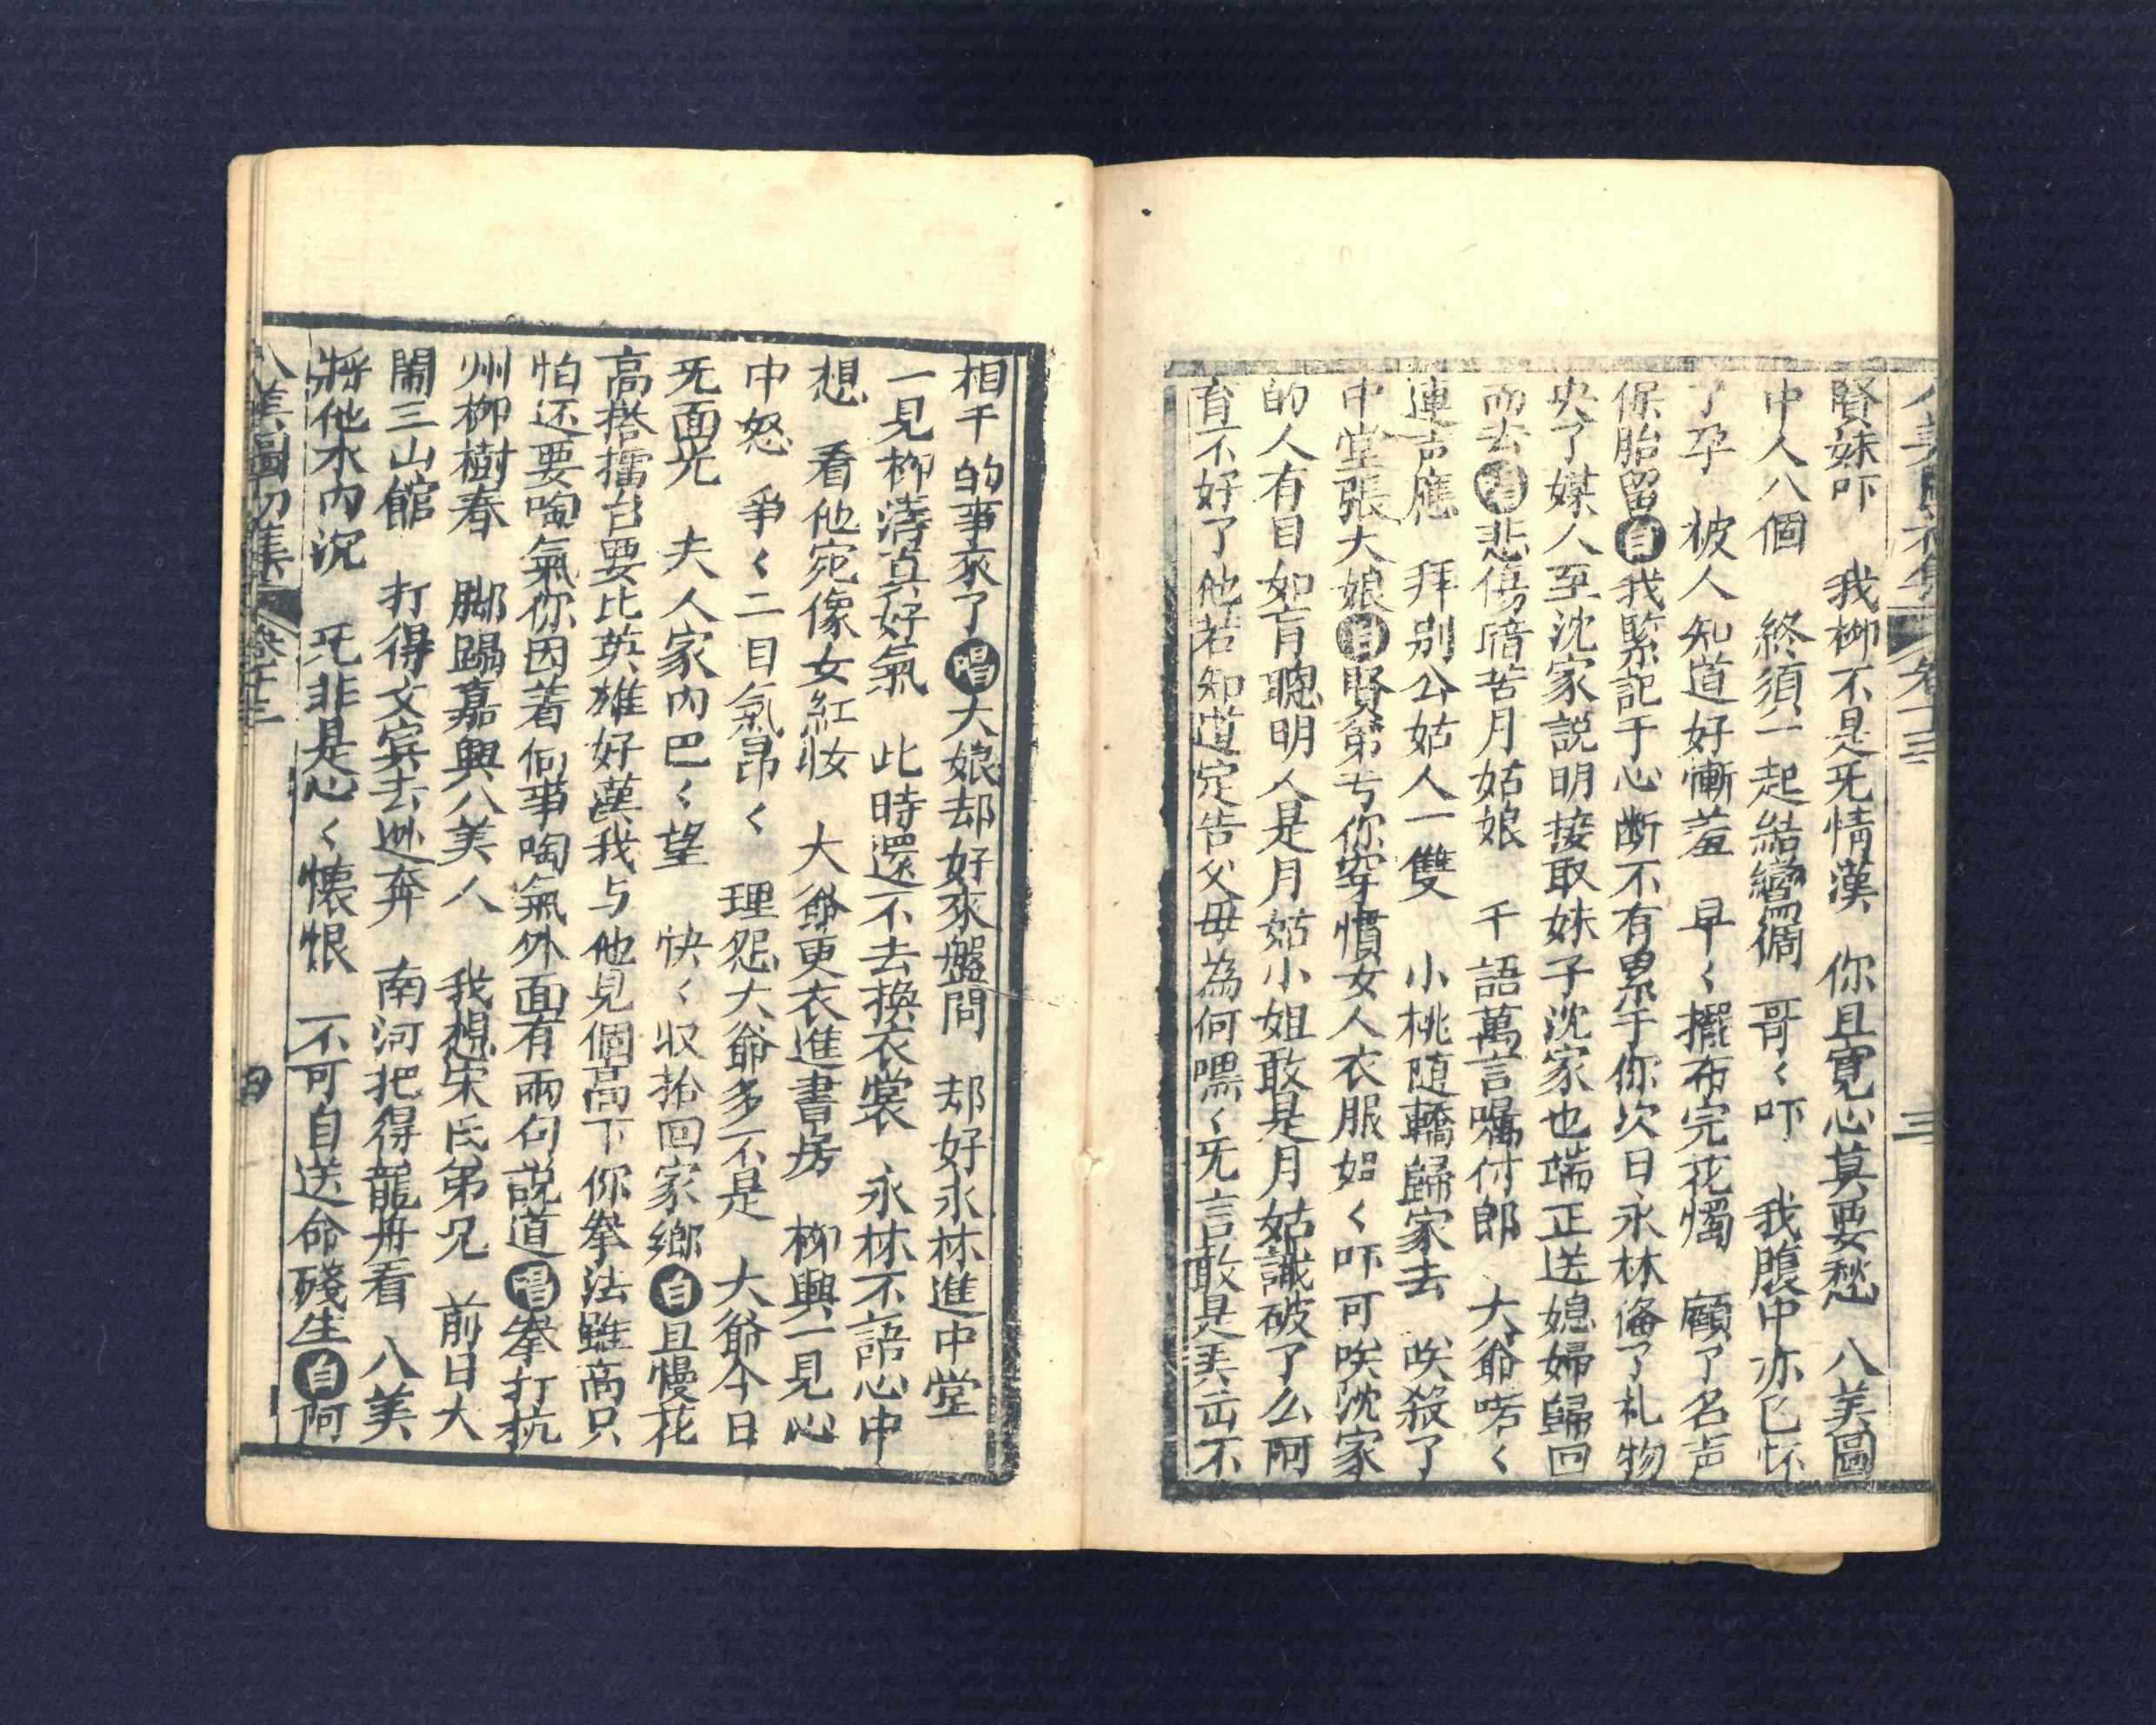 賢妹吓　我柳不是旡情漢　你且寬心莫要愁　八美圖
中人八個　終須一起結鸞儔　哥〻吓　我腹中亦已怀
了孕　被人知道好慚羞　早〻擺布完花燭　顧了名声
保胎留自我緊記于心断不有累于你次日永林俻了札物
央了媒人至沈家説明接取妹子沈家也端正送媳婦歸回
而去唱悲傷暗苦月姑娘　千語萬言囑付郎　大爺喏〻
連声應　拜别公姑人一雙　小桃随轎歸家去　唉殺了
中堂張大娘自賢弟丂你穿慣女人衣服娖〻吓可唉沈家
的人有目如盲聰明人是月姑小姐敢是月姑識破了么阿
育不好了他若知道定告父毋為何嘿〻旡言敢是弄出不
八美圖初集　卷十三　三
相干的事來了唱大娘却好來盤問　却好永林進中堂
一見柳濤真好氣　此時還不去換衣裳　永林不語心中
想　看他宛像女紅妝　大爺更衣進書房　柳興一見心
中怒　爭〻二目氣昂〻　理怨大爺多不是　大爺今日
旡面光　夫人家内巴〻望　快〻収拾回家鄉自且慢花
高搭擂台要比英雄好漢我与他見個高下你拳法雖高只
怕还要啕氣你因着何事啕氣外面有兩句説道唱拳打杭
州柳樹春　脚踢嘉興八美人　我想宋氏弟兄　前日大
閙三山館　打得文賓去逃奔　南河把得龍舟看　八美
將他水内沉　旡非是心〻懐恨　不可自送命殘生自阿
八美圖初集　卷十三